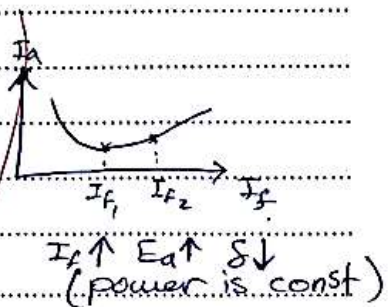 Ia
If₁ If₂ If
If ↑ Ea ↑ δ ↓
(power is const)